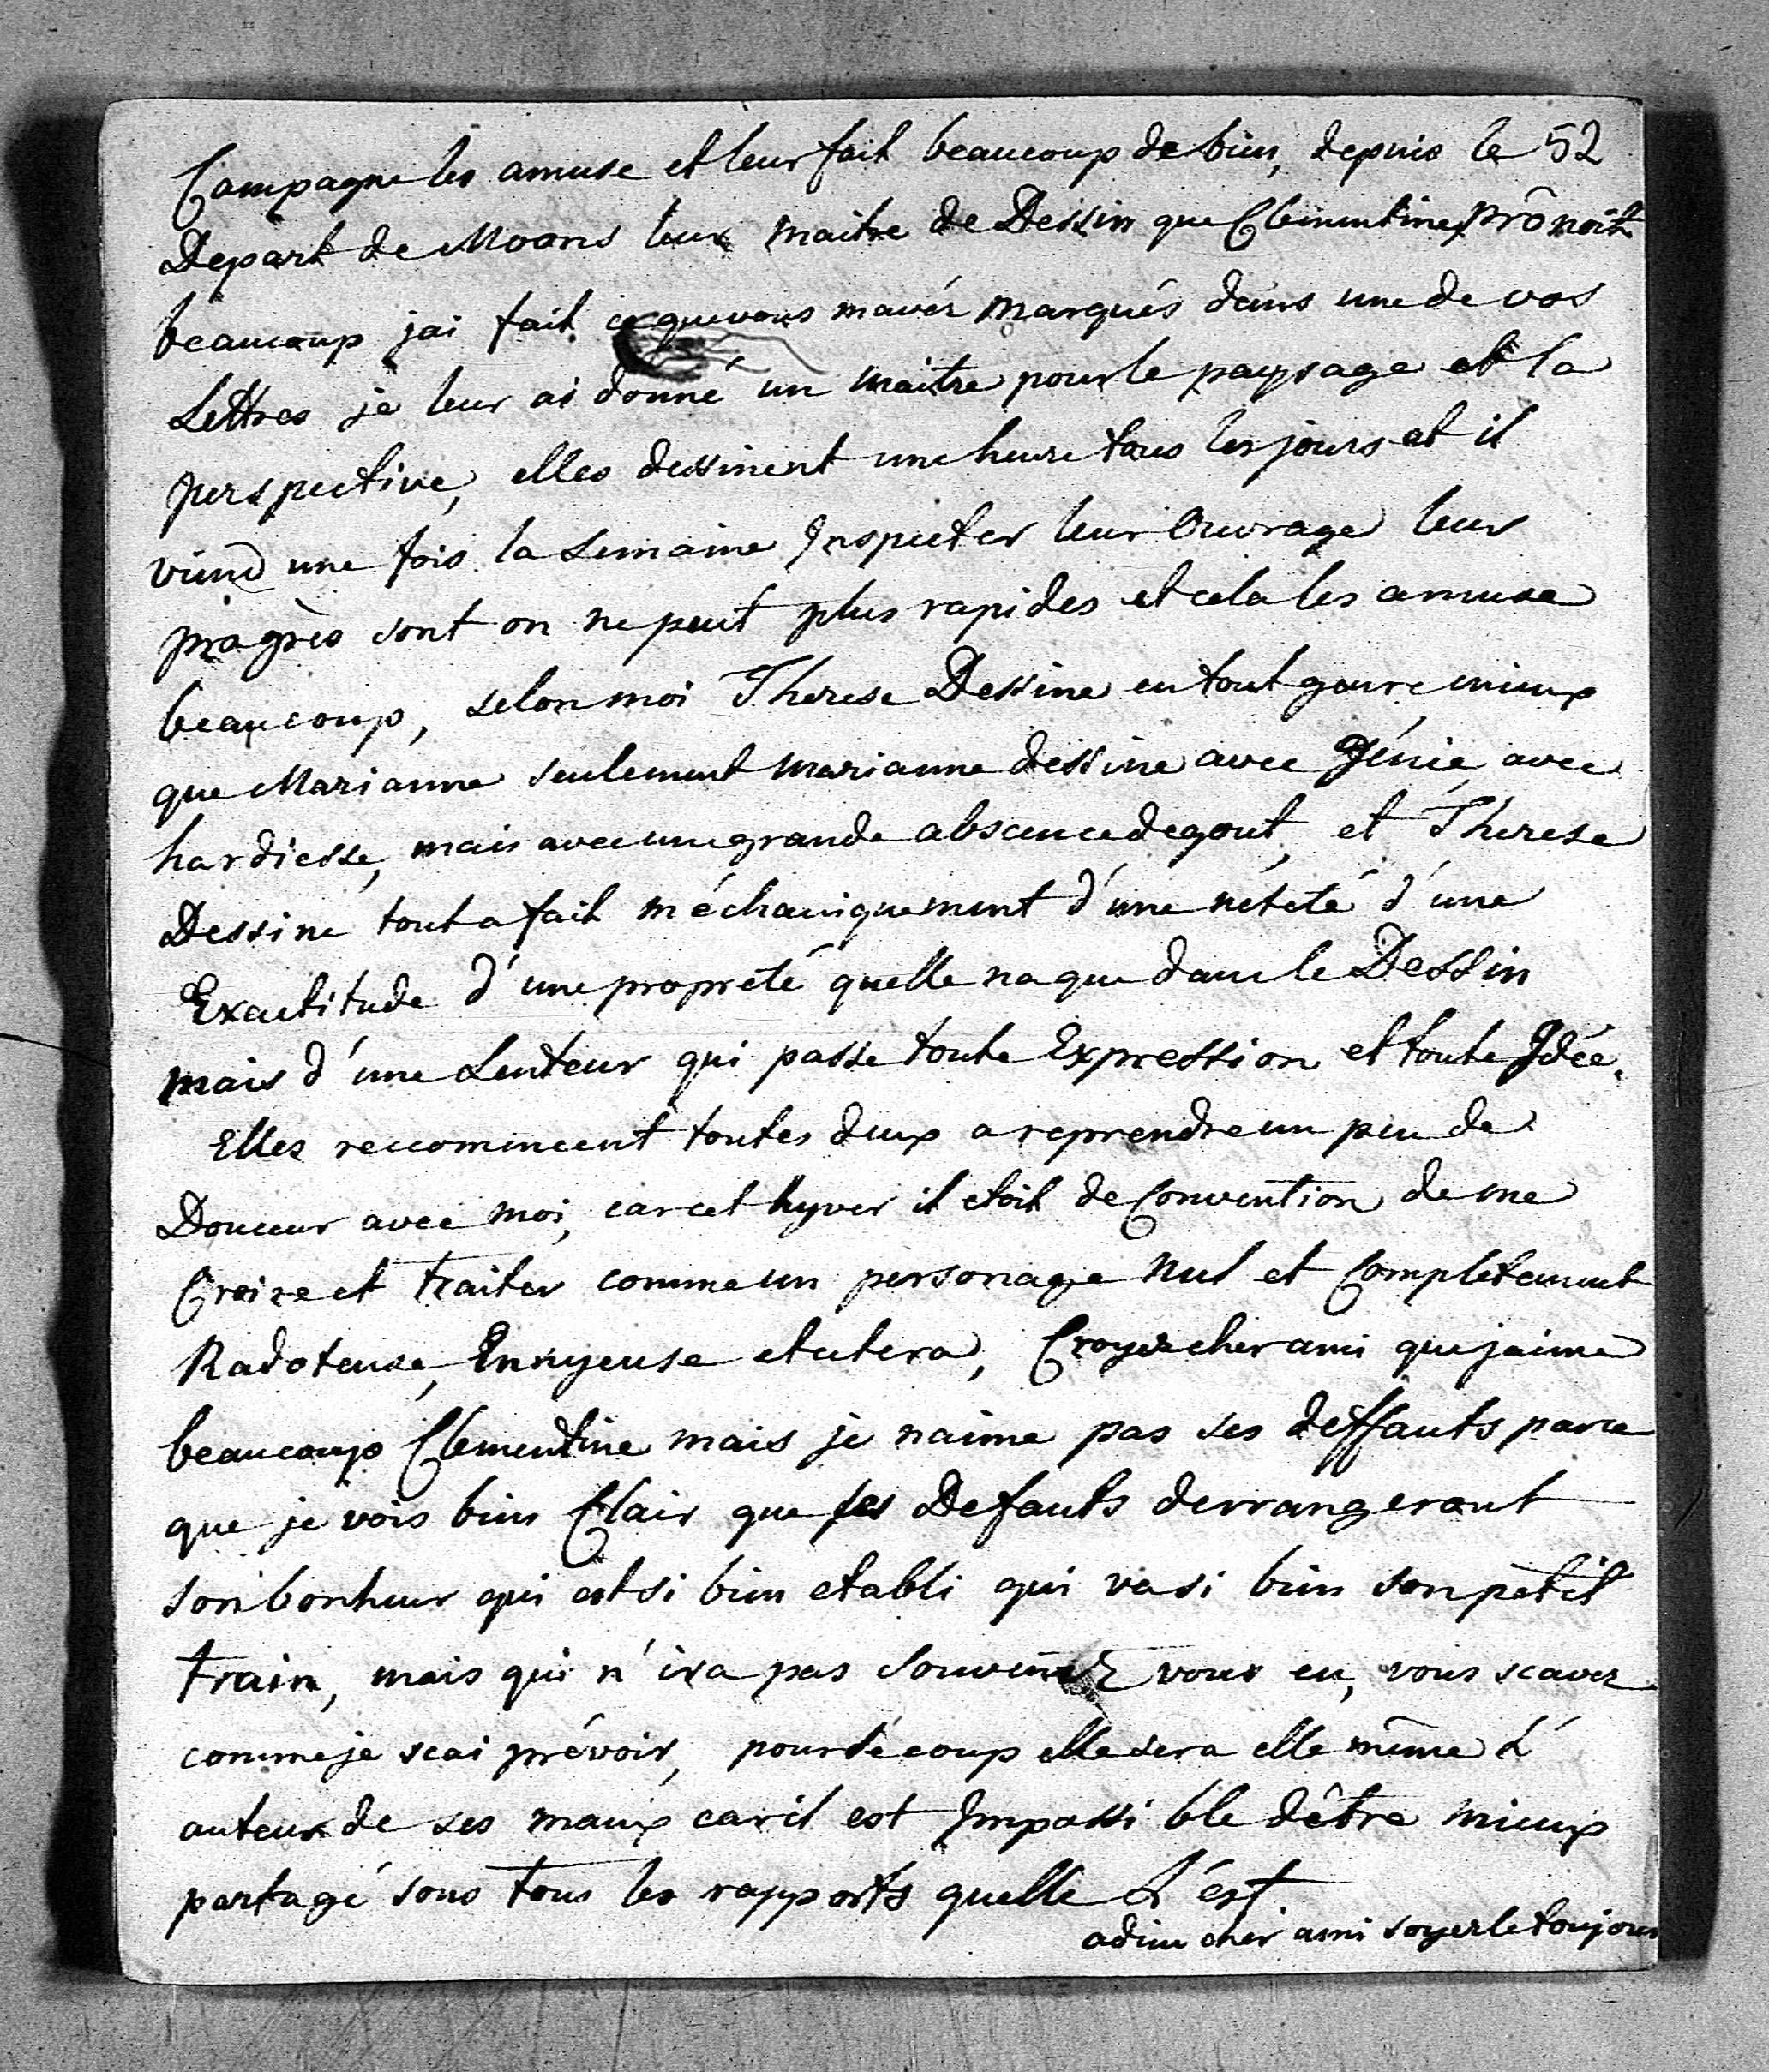 Campagne les amuse et leur fait beaucoup de bien, depuis le 52
Depart de Moons leur maitre de Dessin que Clementine prônoit
beaucoup jai fait ce que vous mavéz marqués dans une de vos
Lettres je leur ai donné un maitre pour le paysage et la
perspective, elles dessinent une heure tous les jours et il
viend une fois la semaine Inspecter leur Ouvrage leur
progrès sont on ne peut plus rapides et cela les amuse
beaucoup, selon moi Therese Dessine en tout genre mieux
que Marianne seulement marianne dessine avec Génie, avec
hardiesse, mais avec une grande absence de gout, et Therese
Dessine tout a fait méchaniquement d'une néteté d'une
Exactitude d'une propreté quelle na que dans le Dessin
mais d'une Lenteur qui passe toute Expression et toute Idée.
Elles reccomincent toutes deux a reprendre un peu de
Douceur avec moi, car cet hyver il etoit de Convention de me
Croire et traiter comme un personage nul et Complètement
Radoteuse, Ennyeuse etcetera, Croyez cher ami que jaime
beaucoup Clementine mais je naime pas ses deffauts parce
que je vois bien Clair que ses Defauts derrangeront
son bonheur qui est si bien etabli qui va si bien son petit
train, mais qui n'ira pas souvenez vous en, vous scavez
comme je scai prévoir, pour se coup elle sera elle même L'
auteur de ses maux car il est Impossible dêtre mieux
partagé sous tous les rapports quelle L'est
adieu cher ami soyez le toujours